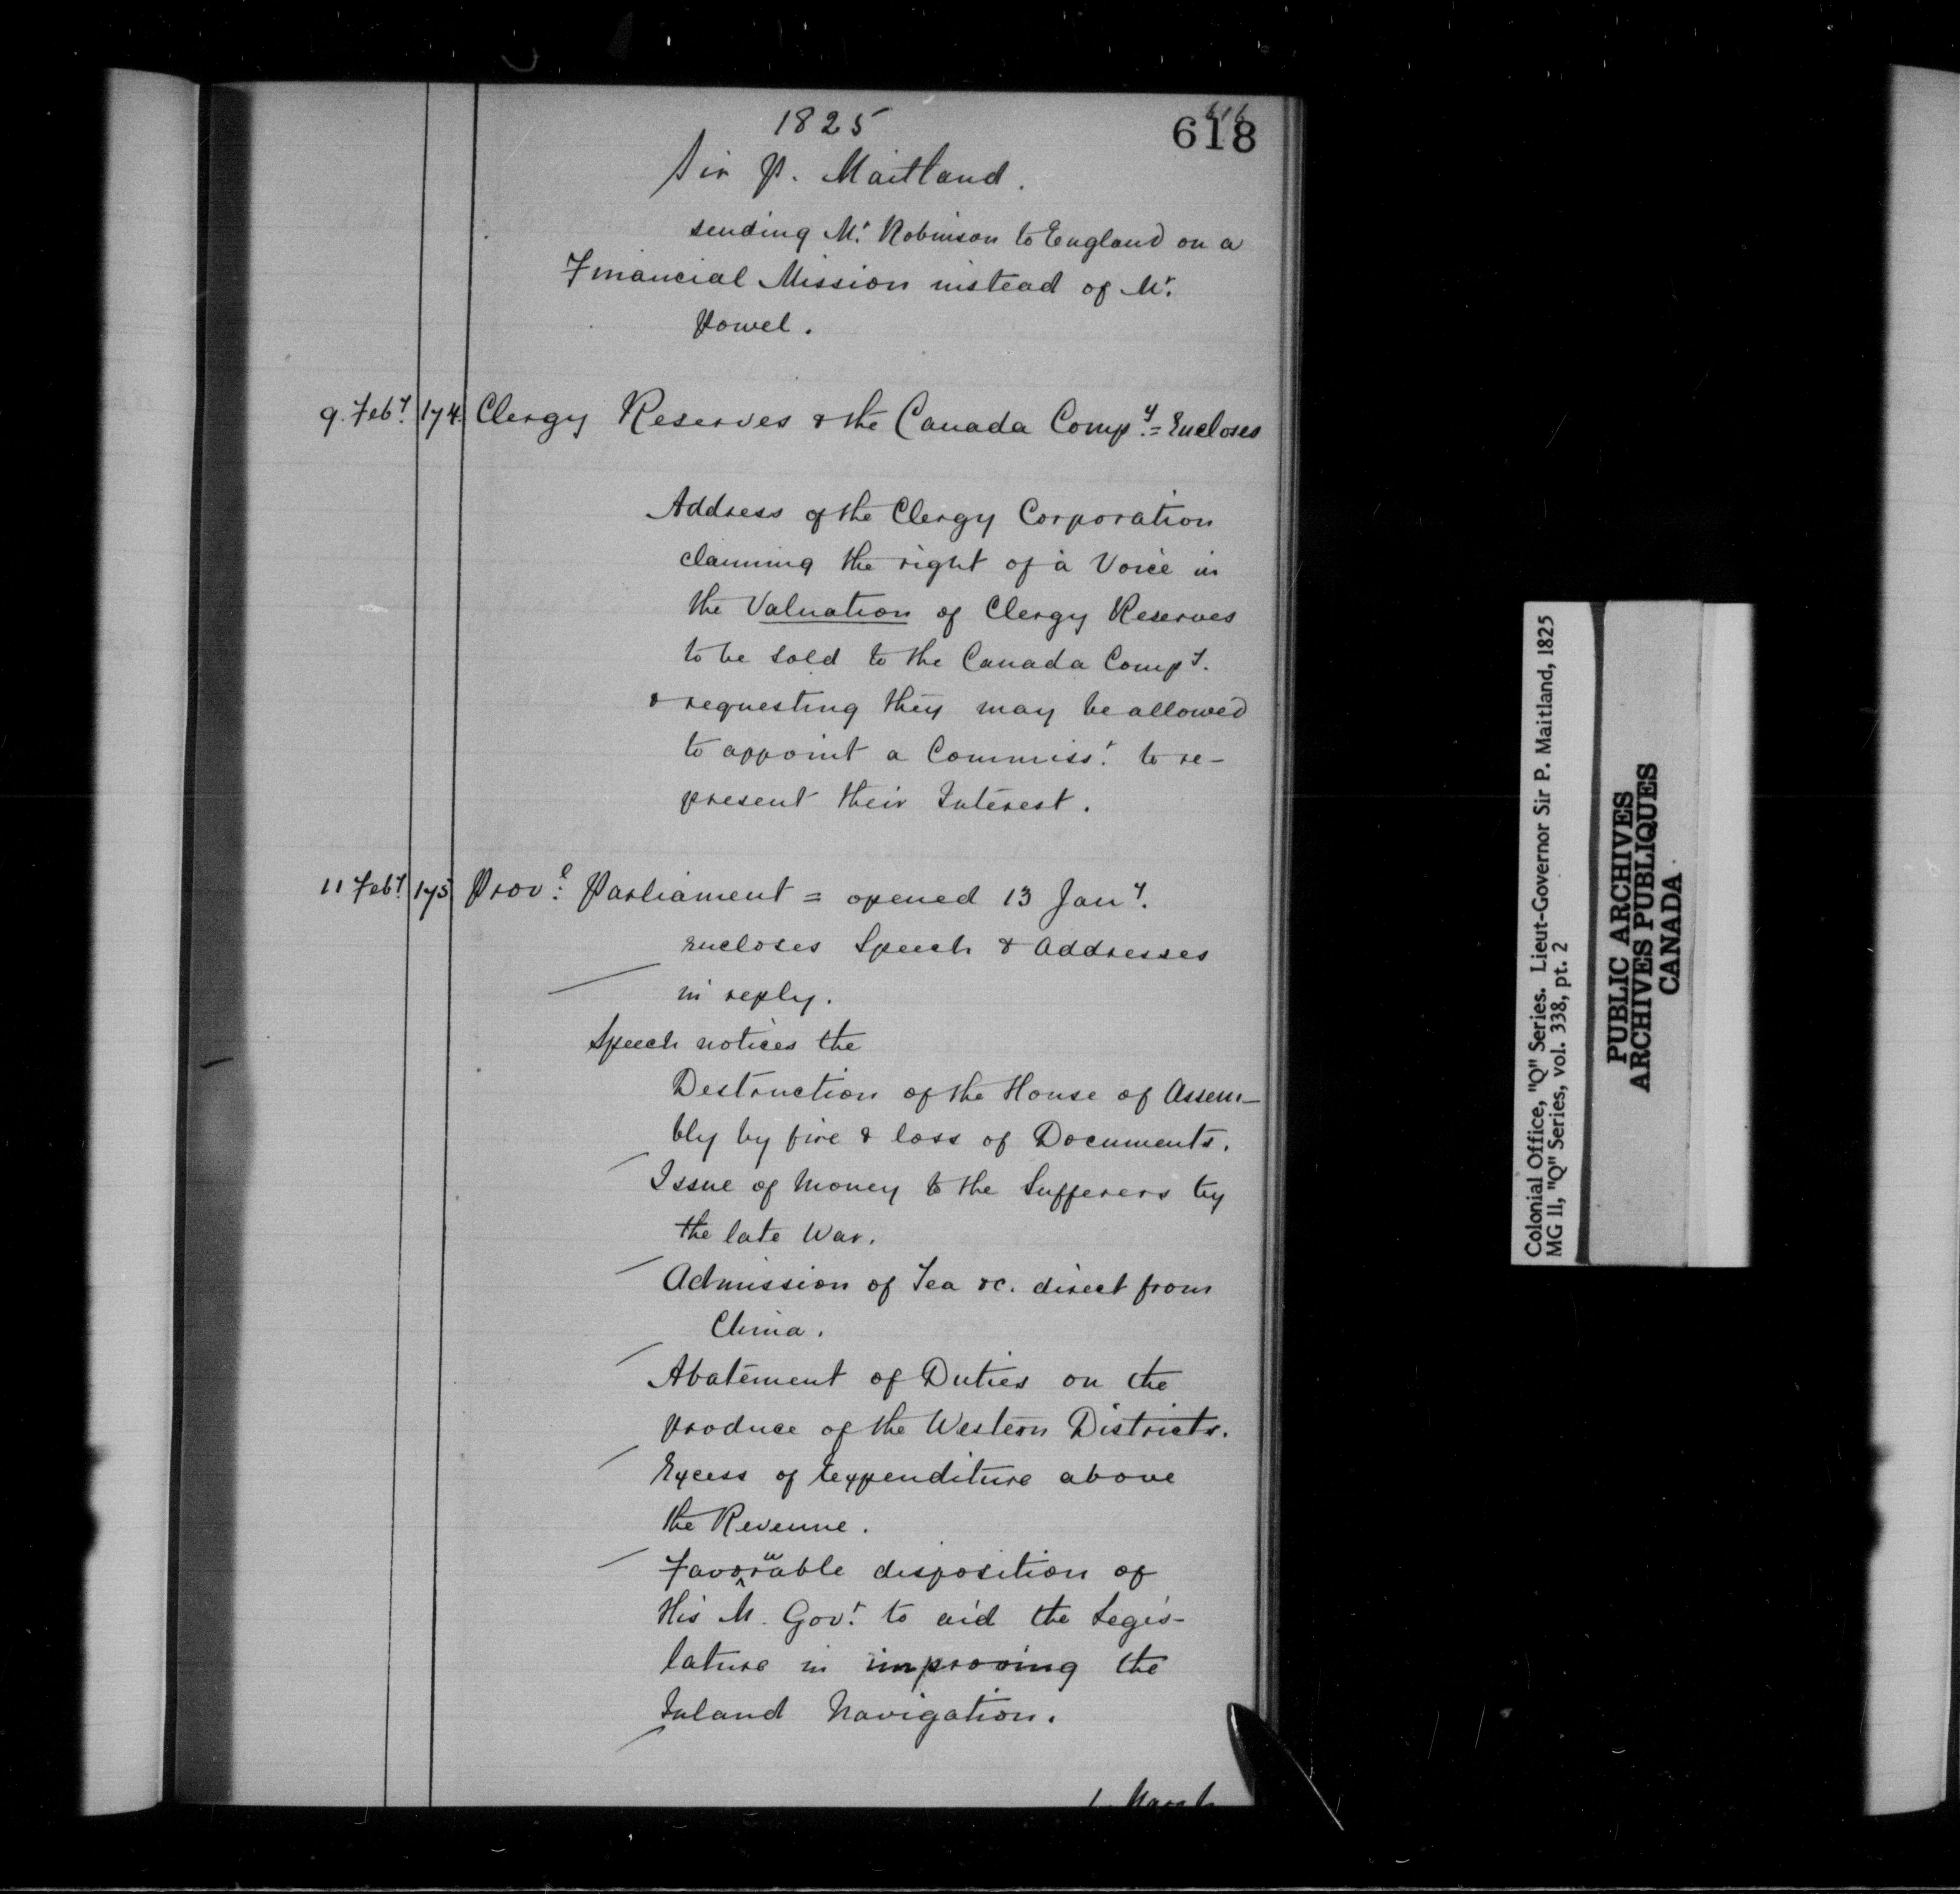 1825
616
618
Sir P. Maitland.
sending Mr. Robinson to England on a
Financial Mission instead of Mr.
Powel.
9. Feby. 174. Clergy Reserves & the Canada Compy. = Encloses
Address of the Clergy Corporation
claiming the right of a Voice in
the Valuation of Clergy Reserves
to be sold to the Canada Compy.
& requesting they may be allowed
to appoint a Commissr. to re-
present their Interest.
11 Feby. 175 Provl: Parliament = opened 13 Jany.
encloses Speech & Addresses
in reply.
Speech notices the
Destruction of the House of Assem-
bly by fire & loss of Documents.
Issue of Money to the Sufferers by
the late War.
Admission of Tea &c. direct from
China.
Abatement of Duties on the
produce of the Western Districts.
Excess of expenditure above
the Revenue.
Favourable disposition of
His M. Govt. to aid the Legis-
lature in improving the
Inland Navigation.
1. March
Colonial Office, "Q" Series. Lieut-Governor Sir P. Maitland, 1825
MG II, "Q" Series, vol. 338, pt. 2
PUBLIC ARCHIVES
ARCHIVES PUBLIQUES
CANADA